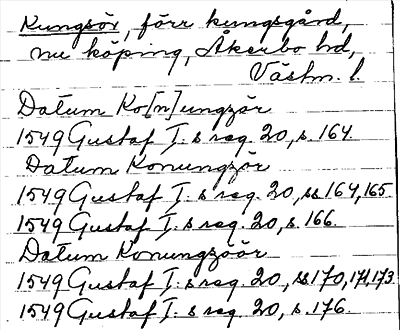 Kungsör, förr kungsgård,
nu köping, Åkerbo hd,
Västm. l.
Datum Ko[n]ungzör
1549 Gustaf I. s reg. 20, s. 164.
Datum Konungzör
1549 Gustaf I. s reg. 20, ss 164, 165
1549 Gustaf I. s reg. 20, s. 166.
Datum Konungzöör
1549 Gustaf I. s reg. 20, ss 170, 171, 173
1549 Gustaf I. s reg. 20, s. 176.